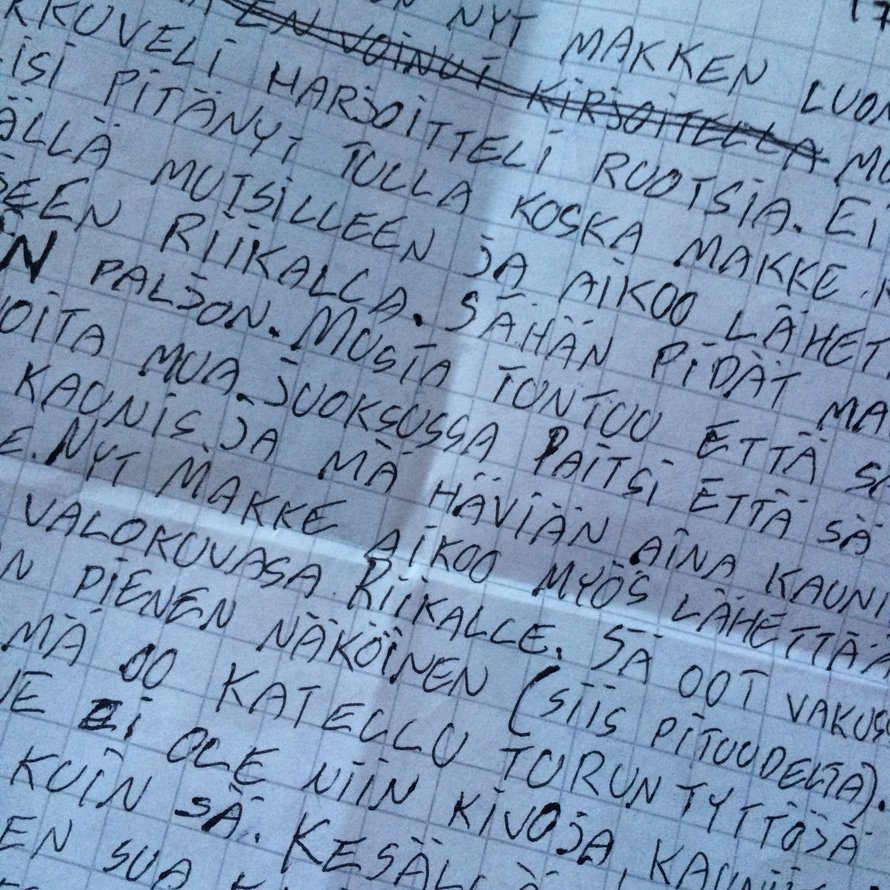 ON NYT MAKKEN LUON
EN VOINUT KIRJOITELLA MU
KKUVELI HARJOITTELI RUOTSIA. EI
ISI PITÄNYT TULLA KOSKA MAKKE
ÄLLÄ MUTSILLEEN JA AIKOO LÄHETT
SEEN RIIKALLE. SÄHÄN PIDÄT MA
N PALJON. MUSTA TUNTUU ETTÄ S
OITA MUA JUOKSUSSA PAITSI ETTÄ SÄ
KAUNIS JA MÄ HÄVIÄN AINA KAUNI
E. NYT MAKKE AIKOO MYÖS LÄHETTÄÄ
VALOKUVASA RIIKALLE. SÄ OOT VAKUS
N PIENEN NÄKÖINEN (SIIS PITUUDELTA).
MÄ OO KATELLU TURUN TYTTÖJÄ
NE EI OLE NIIN KIVOJA, KAUNII
KUIN SÄ. KESÄLLÄ
EN SUA